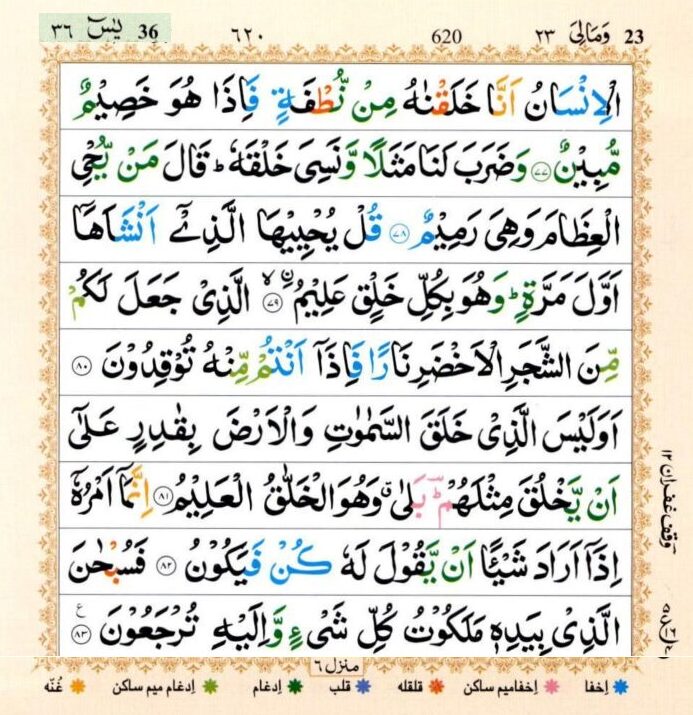 23 وَمَالِیَ ٢٣ 620 ٦٢٠ 36 یٰسٓ ٣٦
الْاِنْسَانُ اَنَّا خَلَقْنٰهُ مِنْ نُّطْفَةٍ فَاِذَا هُوَ خَصِیْمٌ
مُّبِیْنٌ ﴿٧٧﴾ وَضَرَبَ لَنَا مَثَلًا وَّنَسِیَ خَلْقَهٗ ؕ قَالَ مَنْ یُّحْیِ
الْعِظَامَ وَهِیَ رَمِیْمٌ ﴿٧٨﴾ قُلْ یُحْیِیْهَا الَّذِیْۤ اَنْشَاَهَاۤ
اَوَّلَ مَرَّةٍ ؕ وَهُوَ بِكُلِّ خَلْقٍ عَلِیْمُ ۙ ﴿٧٩﴾ الَّذِیْ جَعَلَ لَكُمْ
مِّنَ الشَّجَرِ الْاَخْضَرِ نَارًا فَاِذَاۤ اَنْتُمْ مِّنْهُ تُوْقِدُوْنَ ﴿٨٠﴾
اَوَلَیْسَ الَّذِیْ خَلَقَ السَّمٰوٰتِ وَالْاَرْضَ بِقٰدِرٍ عَلٰۤی
اَنْ یَّخْلُقَ مِثْلَهُمْ ؔؕ بَلٰی ۗ وَهُوَ الْخَلّٰقُ الْعَلِیْمُ ﴿٨١﴾ اِنَّمَاۤ اَمْرُهٗۤ
اِذَاۤ اَرَادَ شَیْـًٔا اَنْ یَّقُوْلَ لَهٗ كُنْ فَیَكُوْنُ ﴿٨٢﴾ فَسُبْحٰنَ
الَّذِیْ بِیَدِهٖ مَلَكُوْتُ كُلِّ شَیْءٍ وَّاِلَیْهِ تُرْجَعُوْنَ ﴿٨٣﴾ ع
وقف غفران ١٢
منزل ٦
اِخفا اِخفامیم ساکن قلقله قلب اِدغام اِدغام میم ساکن غُنّه